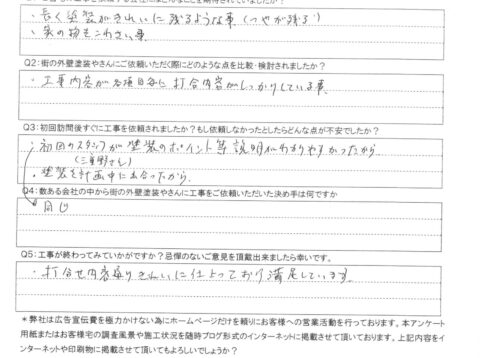 ・長く塗装がきれいに残るような事(つやが残る)
・家の物をこわさい事
Q2:街の外壁塗装やさんにご依頼いただく際にどのような点を比較・検討されましたか?
・工事内容が各項目毎に打合内容がしっかりしている事
Q3:初回訪問後すぐに工事を依頼されましたか?もし依頼しなかったとしたらどんな点が不安でしたか?
・初回のスタッフが塗装のポイント等説明がわかりやすかったから
・塗装を計画中に出合ったから
Q4:数ある会社の中から街の外壁塗装やさんに工事をご依頼いただいた決め手は何ですか
同じ
Q5:工事が終わってみていかがですか?忌憚のないご意見を頂戴出来ましたら幸いです。
・打合せ内容通りきれいに仕上っており満足しています
*弊社は広告宣伝費を極力かけない為にホームページだけを頼りにお客様への営業活動を行っております。本アンケート
用紙またはお客様宅の調査風景や施工状況を随時ブログ形式のインターネットに掲載させて頂いております。上記内容をイ
ンターネットや印刷物に掲載させて頂いてもよろしいでしょうか?